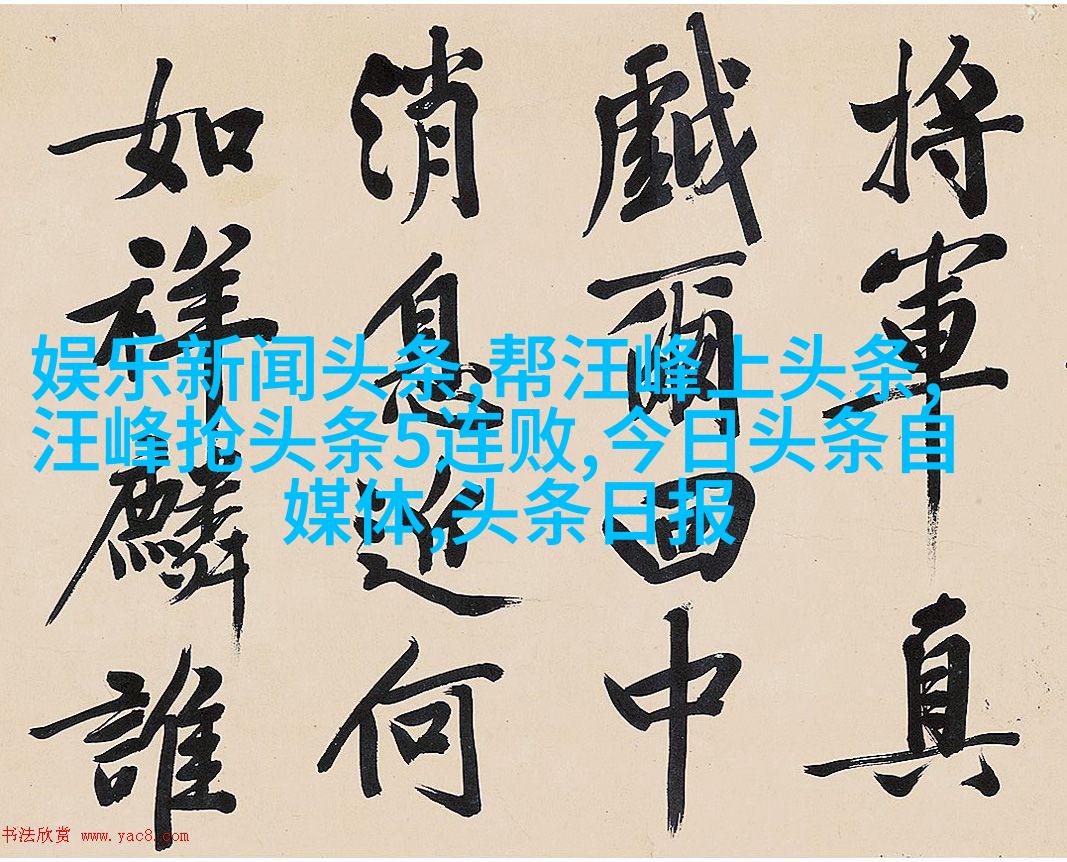 将軍真
戯爾中
消息近何
如祥麟誰
娱乐新闻头条,帮汪峰上头条,
汪峰抢头条5连败,今日头条自
媒体,头条日报
书法欣赏 www.yac8.com